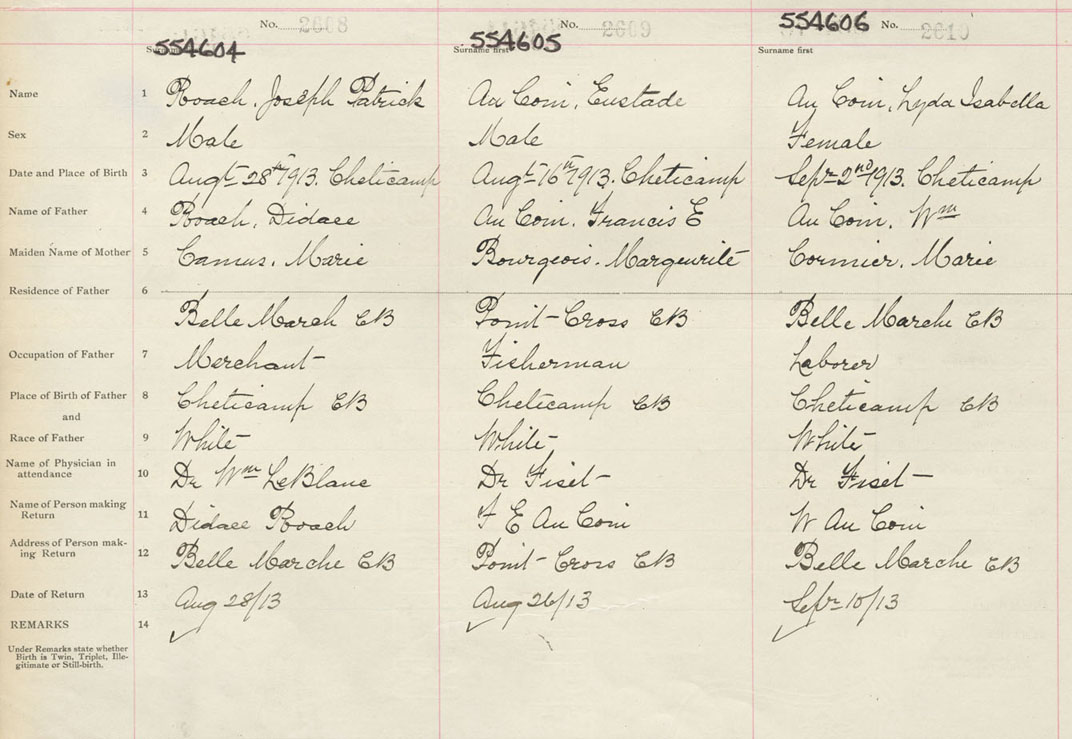 No. 2608 No. 2609 554606 No. 2610
554604 554605
Surname first Surname first
Name 1 Roach, Joseph Patrick Au Coin, Eustade Au Coin, Lyda Isabella
Sex 2 Male Male Female
Date and Place of Birth 3 Augt 28th 1913. Cheticamp Augt 16th 1913. Cheticamp Sepr 2nd 1913. Cheticamp
Name of Father 4 Roach, Didace Au Coin, Francis E Au Coin, Wm
Maiden Name of Mother 5 Camus, Marie Bourgeois. Margeurite Cormier, Marie
Residence of Father 6
Belle March CB Point Cross CB Belle Marche CB
Occupation of Father 7 Merchant Fisherman Laborer
Place of Birth of Father 8 Cheticamp CB Cheticamp CB Cheticamp CB
and
Race of Father 9 White White White
Name of Physician in
attendance 10 Dr Wm LeBlanc Dr Fiset Dr Fiset
Name of Person making
Return 11 Didace Roach F E Au Coin W Au Coin
Address of Person mak-
ing Return 12 Belle Marche CB Point Cross CB Belle Marche CB
Date of Return 13 Aug 28/13 Aug 26/13 Sepr 10/13
REMARKS 14
Under Remarks state whether
Birth is Twin, Triplet, Ille-
gitimate or Still-birth.